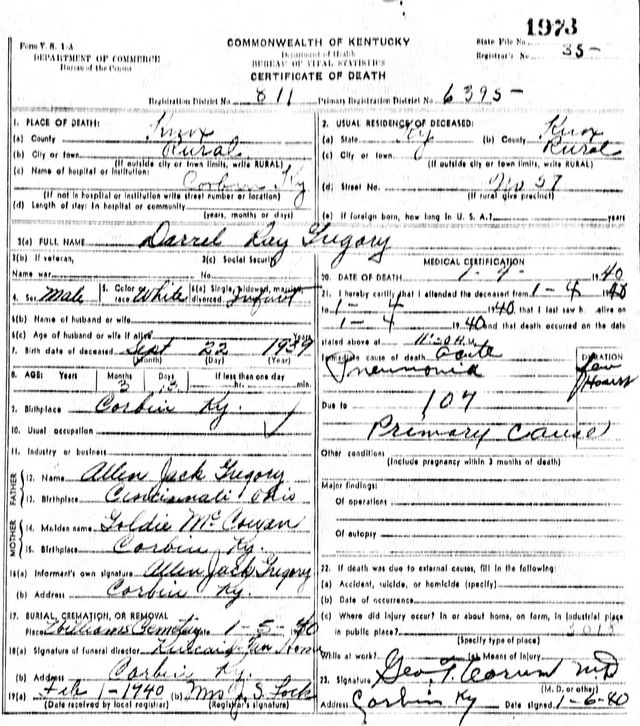 1973
Form V. S. 1-A
COMMONWEALTH OF KENTUCKY
State File No.
DEPARTMENT OF COMMERCE
Department of Health
Registrar's No. 35-
Bureau of the Census
BUREAU OF VITAL STATISTICS
CERTIFICATE OF DEATH
Registration District No. 811 Primary Registration District No. 6395-
1. PLACE OF DEATH:
(a) County Knox
(b) City or town Rural
(If outside city or town limits, write RURAL)
(c) Name of hospital or institution:
Corbin Ky
(If not in hospital or institution write street number or location)
(d) Length of stay: In hospital or community
(years, months or days)
2. USUAL RESIDENCE OF DECEASED:
(a) State Ky (b) County Knox
(c) City or town Rural
(If outside city or town limits, write RURAL)
(d) Street No. No 57
(If rural give precinct)
(e) If foreign born, how long in U. S. A.? years
3(a) FULL NAME Darrel Ray Gregory
3(b) If veteran, 3(c) Social Security
Name war No.
4. Sex Male 5. Color race White 6(a) Single, widowed, married, divorced Infant
6(b) Name of husband or wife
6(c) Age of husband or wife if alive Years
7. Birth date of deceased Sept 22 1939
(Month) (Day) (Year)
8. AGE: Years Months Days If less than one day
3 13 hr. min.
9. Birthplace Corbin Ky.
10. Usual occupation
11. Industry or business
FATHER
12. Name Allen Jack Gregory
13. Birthplace Cincinnati Ohio
MOTHER
14. Maiden name Goldie McCowan
15. Birthplace Corbin Ky.
16(a) Informant's own signature Allen Jack Gregory
(b) Address Corbin Ky.
17. BURIAL, CREMATION, OR REMOVAL
Place Williams Cemetery Date 1-5-1940
18(a) Signature of funeral director Kincaid Fun Home
(b) Address Corbin Ky.
19(a) Feb 1-1940 (b) Mrs J. S. Lock
(Date received by local registrar) (Registrar's signature)
MEDICAL CERTIFICATION
20. DATE OF DEATH 1-4- 1940
21. I hereby certify that I attended the deceased from 1-4 1940
to 1-4 1940, that I last saw h alive on
1-4 1940 and that death occurred on the date
stated above at 11:20 A.M.
Immediate cause of death Acute
DURATION
Pneumonia few Hours
Due to 107
Primary cause
Other conditions
(Include pregnancy within 3 months of death)
Major findings:
Of operations
Of autopsy
22. If death was due to external causes, fill in the following:
(a) Accident, suicide, or homicide (specify)
(b) Date of occurrence
(c) Where did injury occur? In or about home, on farm, in industrial place
in public place?
(Specify type of place)
While at work? (e) Means of Injury
23. Signature Geo. T. Corum MD
(M. D. or other)
Address Corbin Ky Date signed 1-6-40